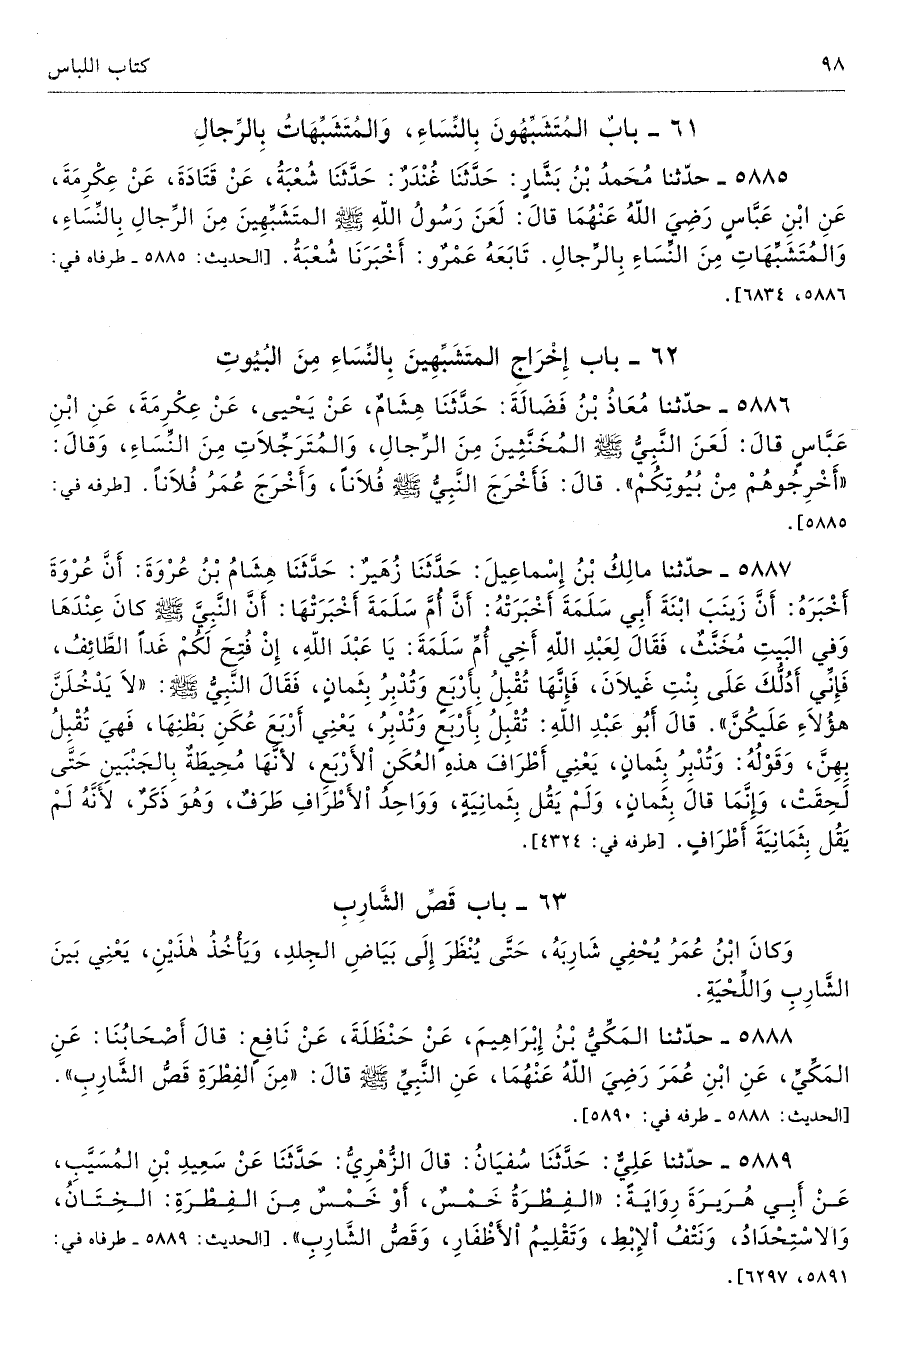 ٩٨ كتاب اللباس
٦١ ـ بابٌ المُتَشَبِّهُونَ بِالنِّسَاءِ، وَالمُتَشَبِّهَاتُ بِالرِّجالِ
٥٨٨٥ ـ حدّثنا مُحَمدُ بْنُ بَشَّارٍ: حَدَّثَنَا غُنْدَرٌ: حَدَّثَنَا شُعْبَةُ، عَنْ قَتَادَةَ، عَنْ عِكْرِمَةَ،
عَنِ ابْنِ عَبَّاسٍ رَضِيَ اللّهُ عَنْهُمَا قالَ: لَعَنَ رَسُولُ اللّهِ ﷺ المتَشَبِّهِينَ مِنَ الرِّجالِ بِالنِّسَاءِ،
وَالْمُتَشَبِّهَاتِ مِنَ النِّسَاءِ بِالرِّجالِ. تَابَعَهُ عَمْرٌو: أَخْبَرَنَا شُعْبَةُ. [الحديث: ٥٨٨٥ ـ طرفاه في:
٥٨٨٦، ٦٨٣٤].
٦٢ ـ باب إِخْرَاجِ المتَشَبِّهِينَ بِالنِّسَاءِ مِنَ البُيُوتِ
٥٨٨٦ ـ حدّثنا مُعَاذُ بْنُ فَضَالَةَ: حَدَّثَنَا هِشَامٌ، عَنْ يَحْيى، عَنْ عِكْرِمَةَ، عَنِ ابْنِ
عَبَّاسٍ قالَ: لَعَنَ النَّبِيُّ ﷺ المُخَنَّثِينَ مِنَ الرِّجالِ، وَالمُتَرَجِّلاَتِ مِنَ النِّسَاءِ، وَقالَ:
«أَخْرِجُوهُمْ مِنْ بُيُوتِكُمْ». قالَ: فَأَخْرَجَ النَّبِيُّ ﷺ فُلاَناً، وَأَخْرَجَ عُمَرُ فُلاَناً. [طرفه في:
٥٨٨٥].
٥٨٨٧ ـ حدّثنا مالِكُ بْنُ إِسْماعِيلَ: حَدَّثَنَا زُهَيرٌ: حَدَّثَنَا هِشَامُ بْنُ عُرْوَةَ: أَنَّ عُرْوَةَ
أَخْبَرَهُ: أَنَّ زَينَبَ ابْنَةَ أَبِي سَلَمَةَ أَخْبَرَتْهُ: أَنَّ أُمَّ سَلَمَةَ أَخْبَرَتْهَا: أَنَّ النَّبِيَّ ﷺ كانَ عِنْدَهَا
وَفِي البَيتِ مُخَنَّثٌ، فَقَالَ لِعَبْدِ اللّهِ أَخِي أُمِّ سَلَمَةَ: يَا عَبْدَ اللّهِ، إِنْ فُتِحَ لَكُمْ غَداً الطَّائِفُ،
فَإِنِّي أَدُلُّكَ عَلَى بِنْتِ غَيلاَنَ، فَإِنَّهَا تُقْبِلُ بِأَرْبَعٍ وَتُدْبِرُ بِثَمانٍ، فَقَالَ النَّبِيُّ ﷺ: «لاَ يَدْخُلَنَّ
هؤُلاَءِ عَلَيكُنَّ». قالَ أَبُو عَبْدِ اللّهِ: تُقْبِلُ بِأَرْبَعٍ وَتُدْبِرُ، يَعْنِي أَرْبَعَ عُكَنِ بَطْنِهَا، فَهيَ تُقْبِلُ
بِهِنَّ، وَقَوْلُهُ: وَتُدْبِرُ بِثَمانٍ، يَعْنِي أَطْرَافَ هذهِ العُكَنِ الأَرْبَعِ، لأَنَّهَا مُحِيطَةٌ بِالجَنْبَينِ حَتَّى
لَحِقَتْ، وَإِنَّمَا قالَ بِثَمانٍ، وَلَمْ يَقُل بِثَمانِيَةٍ، وَوَاحِدُ الأَطْرَافِ طَرَفٌ، وَهُوَ ذَكَرٌ، لأَنَّهُ لَمْ
يَقُل بِثَمَانِيَةَ أَطْرَافٍ. [طرفه في: ٤٣٢٤].
٦٣ ـ باب قَصِّ الشَّارِبِ
وَكانَ ابْنُ عُمَرَ يُحْفِي شارِبَهُ، حَتَّى يُنْظَرَ إِلَى بَيَاضِ الجِلدِ، وَيَأْخُذُ هٰذَيْنِ، يَعْنِي بَينَ
الشَّارِبِ وَاللِّحْيَةِ.
٥٨٨٨ ـ حدّثنا المَكِّيُّ بْنُ إِبْرَاهِيمَ، عَنْ حَنْظَلَةَ، عَنْ نَافِعٍ: قالَ أَصْحَابُنَا: عَنِ
المَكِّيِّ، عَنِ ابْنِ عُمَرَ رَضِيَ اللّهُ عَنْهُمَا، عَنِ النَّبِيِّ ﷺ قالَ: «مِنَ الفِطْرَةِ قَصُّ الشَّارِبِ».
[الحديث: ٥٨٨٨ ـ طرفه في: ٥٨٩٠].
٥٨٨٩ ـ حدّثنا عَلِيٌّ: حَدَّثَنَا سُفيَانُ: قالَ الزُّهْرِيُّ: حَدَّثَنَا عَنْ سَعِيدِ بْنِ المُسَيَّبِ،
عَنْ أَبِي هُرَيرَةَ رِوَايَةً: «الفِطْرَةُ خَمْسٌ، أَوْ خَمْسٌ مِنَ الفِطْرَةِ: الخِتَانُ،
وَالاسْتِحْدَادُ، وَنَتْفُ الإِبْطِ، وَتَقْلِيمُ الأَظْفَارِ، وَقَصُّ الشَّارِبِ». [الحديث: ٥٨٨٩ ـ طرفاه في:
٥٨٩١، ٦٢٩٧].